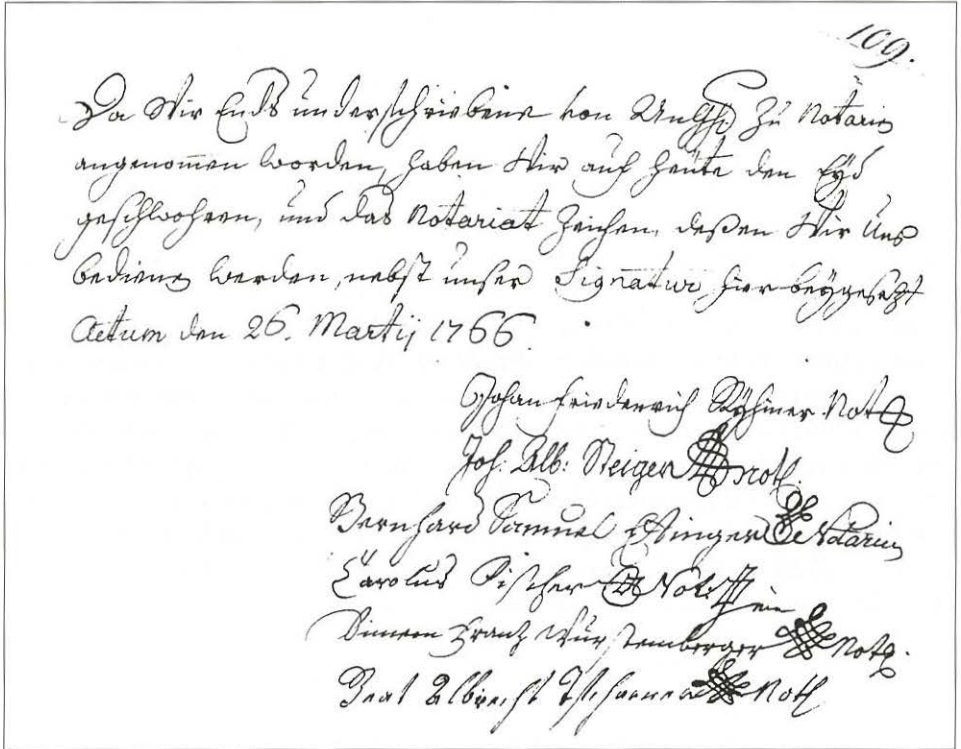 109.
Da Wir Ends underschriebene von MnGHh zu Notarien
angenom̄en worden, haben Wir auf heüte den Eyd
geschwohren, und das Notariat Zeichen, deßen Wir Uns
bedienen werden, nebst unser Signatur, hier beygesetzt
Actum den 26. Martij 1766.
Johan Friederich Ryhiner Not
Joh: Alb: Steiger Not.
Bernhard Samuel Effinger Notarius
Carolus Fischer Not.
Simeon Frantz Wurstemberger Not.
Beat Albrecht Tscharner Not